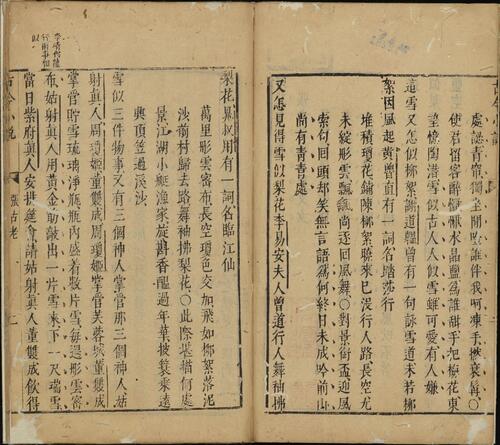 處認青帘獨坐閒吟誰伴我呵凍手撚衰髯○
使君留客醉懨懨水晶鹽為誰甜手把梅花東
望憶陶潛雪似古人人似雪雖可愛有人嫌
這雪又怎似柳絮謝道韞曾有一句詠雪道未若柳
絮因風起黃魯直有一詞名踏莎行
堆積瓊花鋪陳柳絮曉來已沒行人路長空尤
未綻彤雲飄颻尚逐回風舞○對景銜盃迎風
索句回頭却笑無言語為何終日未成吟前山
尚有青青處
又怎見得雪似梨花李易安夫人曾道行人舞袖拂
梨花晁叔用有一詞名臨江仙
萬里彤雲密布長空瓊色交加飛如柳絮落泥
沙前村歸去路舞袖拂梨花○此際堪描何處
景江湖小艇漁家旋斟香醞過年華披簑乘遠
興頂笠過溪沙
雪似三件物事又有三個神人掌管那三個神人姑
射真人周瓊姬董雙成周瓊姬掌管芙蓉城董雙成
掌管貯雪琉璃淨瓶瓶內盛着數片雪每遇彤雲密
布姑射真人用黃金筯敲出一片雪來下一尺瑞雪
當日紫府真人安排筵會請姑射真人董雙成飲得
古今小說
張古老
二